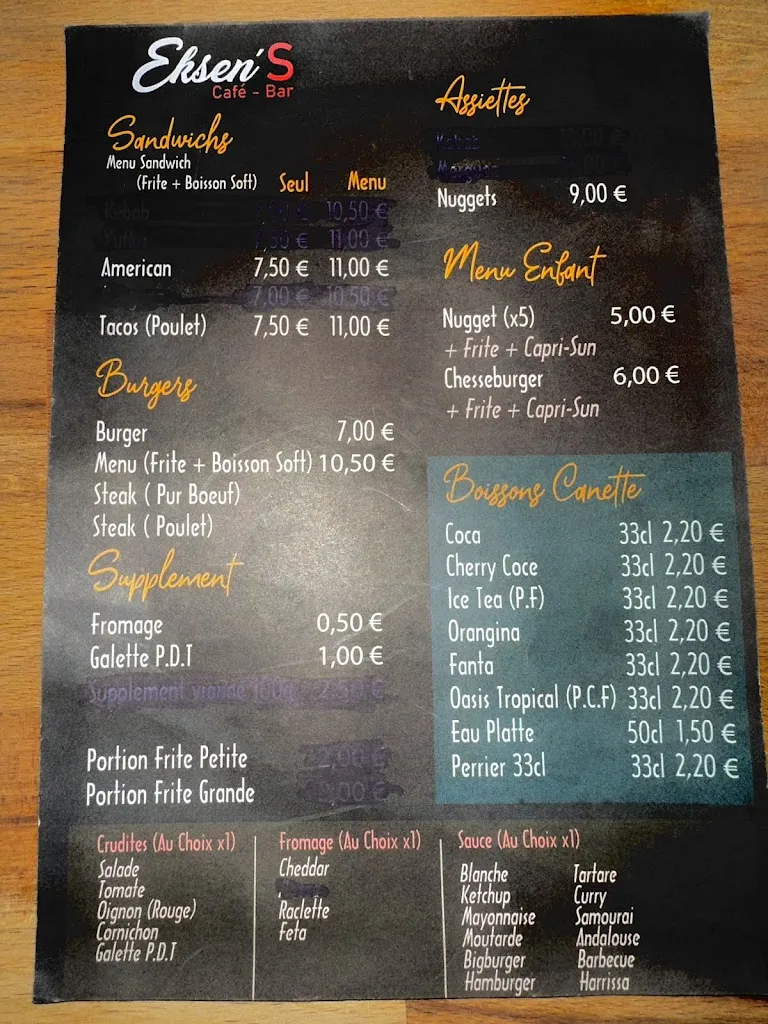 Eksen'S
Café - Bar
Sandwichs
Menu Sandwich
(Frite + Boisson Soft) Seul Menu
Kebab 10,50 €
7,50 € 11,00 €
American 7,50 € 11,00 €
7,00 € 10,50 €
Tacos (Poulet) 7,50 € 11,00 €
Burgers
Burger 7,00 €
Menu (Frite + Boisson Soft) 10,50 €
Steak ( Pur Boeuf)
Steak ( Poulet)
Supplement
Fromage 0,50 €
Galette P.D.T 1,00 €
Supplement viande 100g 2,50 €
Portion Frite Petite 2,00 €
Portion Frite Grande
Assiettes
Kebab
Merguez
Nuggets 9,00 €
Menu Enfant
Nugget (x5) 5,00 €
+ Frite + Capri-Sun
Chesseburger 6,00 €
+ Frite + Capri-Sun
Boissons Canette
Coca 33cl 2,20 €
Cherry Coce 33cl 2,20 €
Ice Tea (P.F) 33cl 2,20 €
Orangina 33cl 2,20 €
Fanta 33cl 2,20 €
Oasis Tropical (P.C.F) 33cl 2,20 €
Eau Platte 50cl 1,50 €
Perrier 33cl 33cl 2,20 €
Crudites (Au Choix x1)
Salade
Tomate
Oignon (Rouge)
Cornichon
Galette P.D.T
Fromage (Au Choix x1)
Cheddar
Raclette
Feta
Sauce (Au Choix x1)
Blanche
Ketchup
Mayonnaise
Moutarde
Bigburger
Hamburger
Tartare
Curry
Samourai
Andalouse
Barbecue
Harrissa